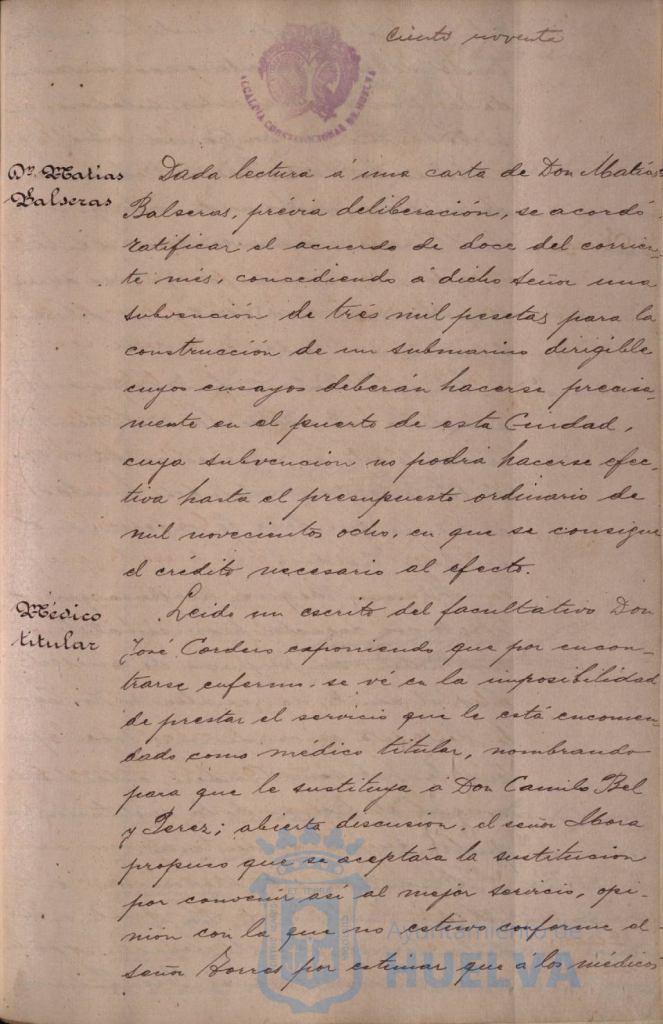 Ciento noventa
ALCALDIA CONSTITUCIONAL DE HUELVA
Dn. Matias
Balseras
Dada lectura á una carta de Don Matías
Balseras, prévia deliberación, se acordó
ratificar el acuerdo de doce del corrien-
te mes, concediendo á dicho señor una
subvención de trés mil pesetas para la
construcción de un submarino dirigible
cuyos ensayos deberán hacerse precisa-
mente en el puerto de esta Ciudad,
cuya subvencion no podrá hacerse efec-
tiva hasta el presupuesto ordinario de
mil novecientos ocho, en que se consigne
el crédito necesario al efecto.
Médico
titular
Leido un escrito del facultativo Don
José Cordero esponiendo que por encon-
trarse enfermo se vé en la imposibilidad
de prestar el servicio que le está encomen-
dado como médico titular, nombrando
para que le sustituya á Don Camilo Bel
y Perez; abierta discusion, el señor Mora
propuso que se aceptára la sustitucion
por convenir así al mejor servicio, opi-
nión con la que no estuvo conforme el
señor Torres por estimar que a los médicos
Ayuntamiento de
HUELVA